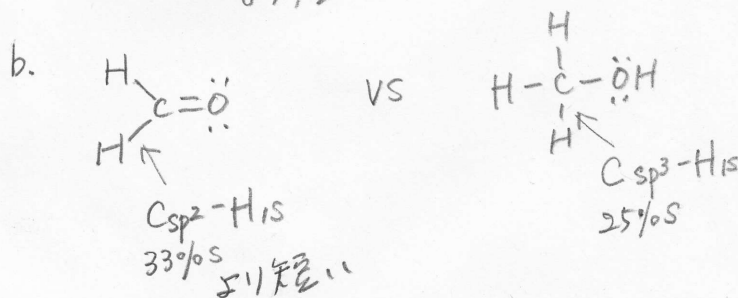 b.
H
H
C=Ö:
VS
H
H-C-ÖH
H
Csp²-H1s
33%s
より短い
Csp³-H1s
25%s